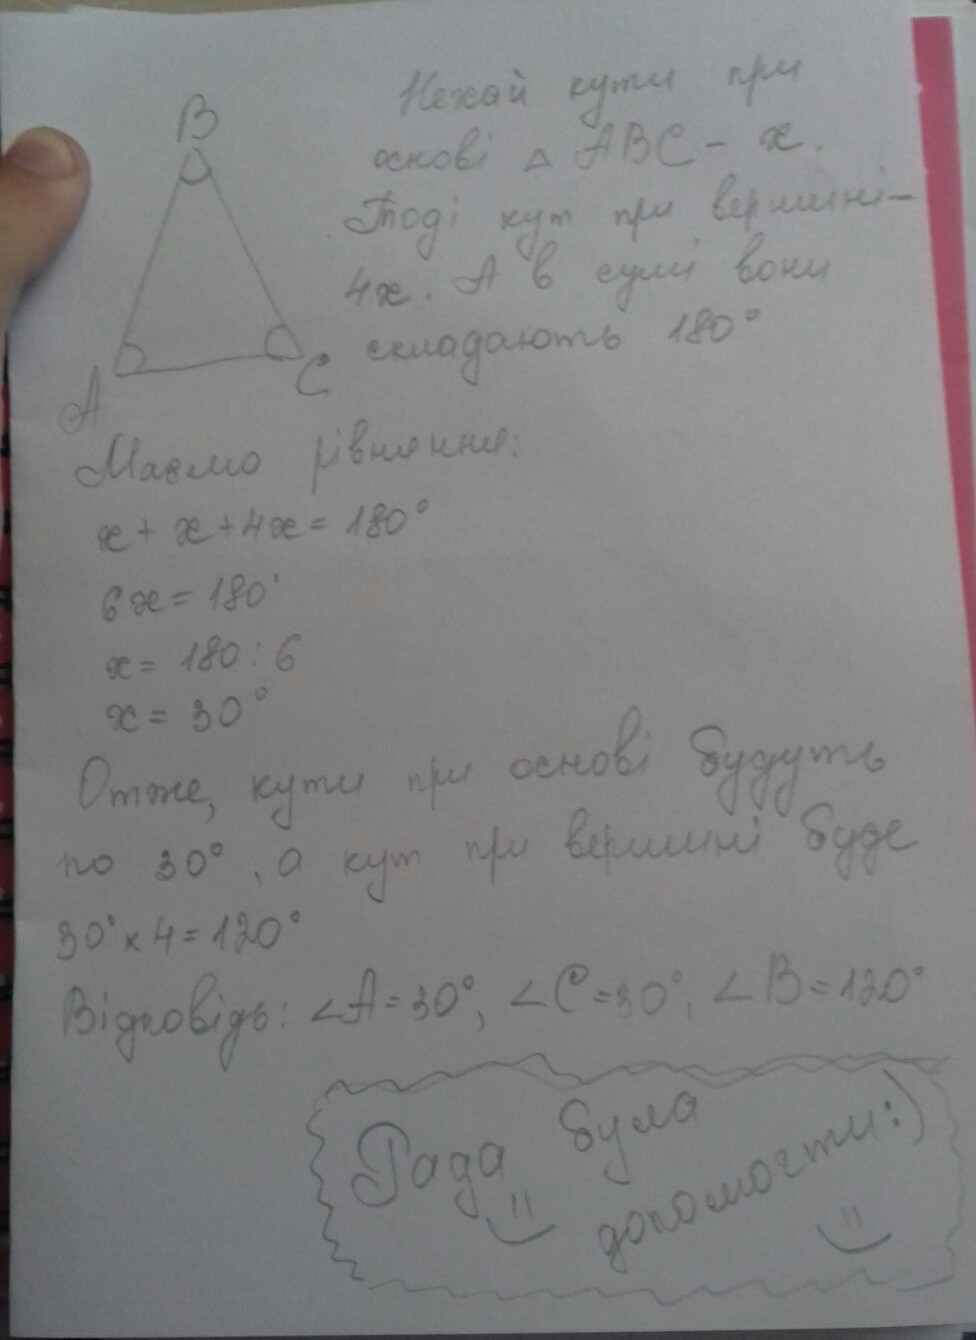 B
A
C
Нехай кути при
основі △ ABC - x.
Тоді кут при вершині-
4x. А в сумі вони
складають 180°
Маємо рівняння:
x + x + 4x = 180°
6x = 180°
x = 180 : 6
x = 30°
Отже, кути при основі будуть
по 30°, а кут при вершині буде
30° x 4 = 120°
Відповідь: ∠A = 30°, ∠C = 30°, ∠B = 120°
Рада була
допомогти:)